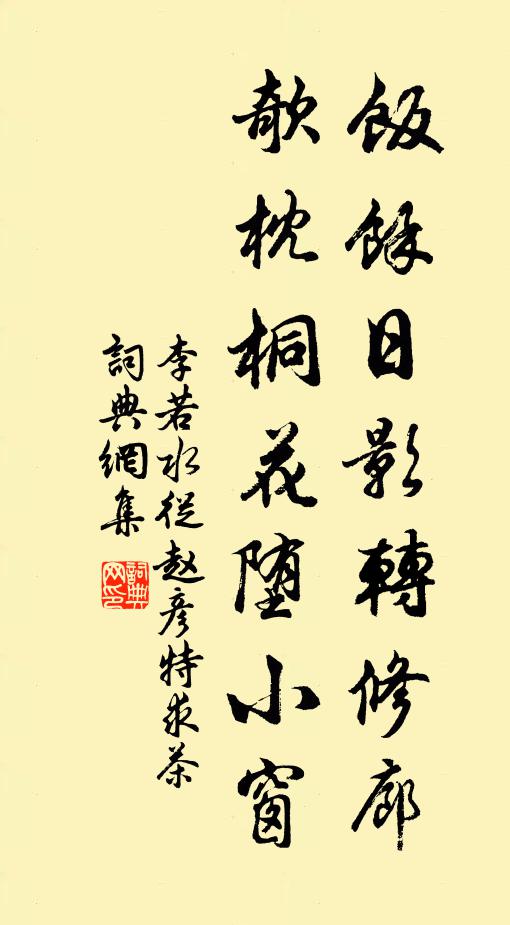 飯餘日影轉修廊
欹枕桐花墮小窗
李若水從赵彥特求茶
詞典網集
詞典
网印